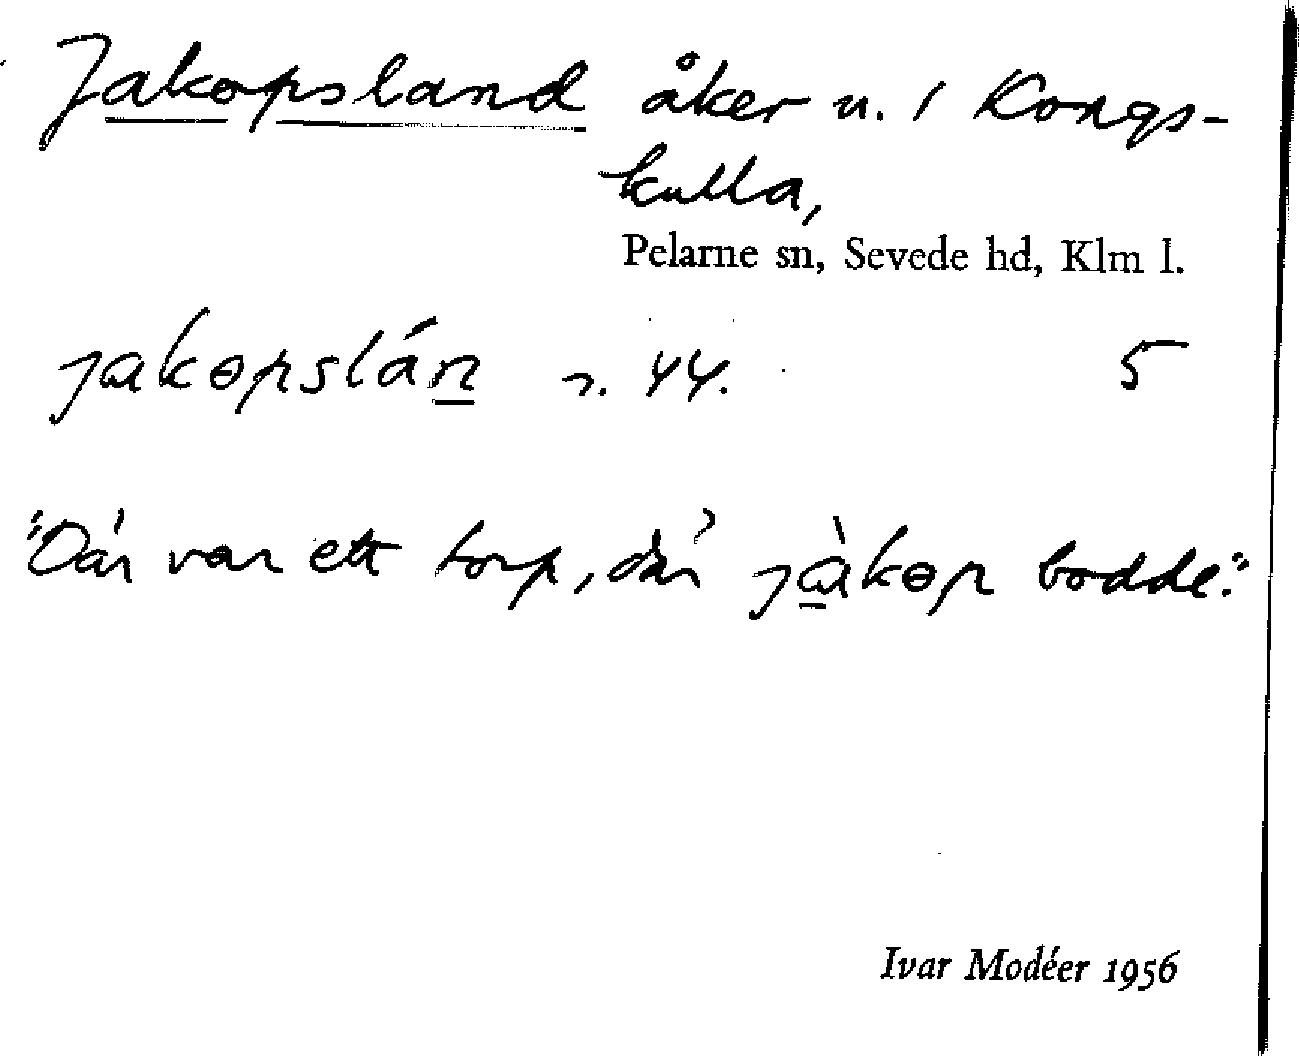 Jakopsland åker u. 1 Kongs-
kulla,
Pelarne sn, Sevede hd, Klm l.
jakɵpslán n. 44. 5
"Där var ett torp, där jàkɵp bodde."
Ivar Modéer 1956